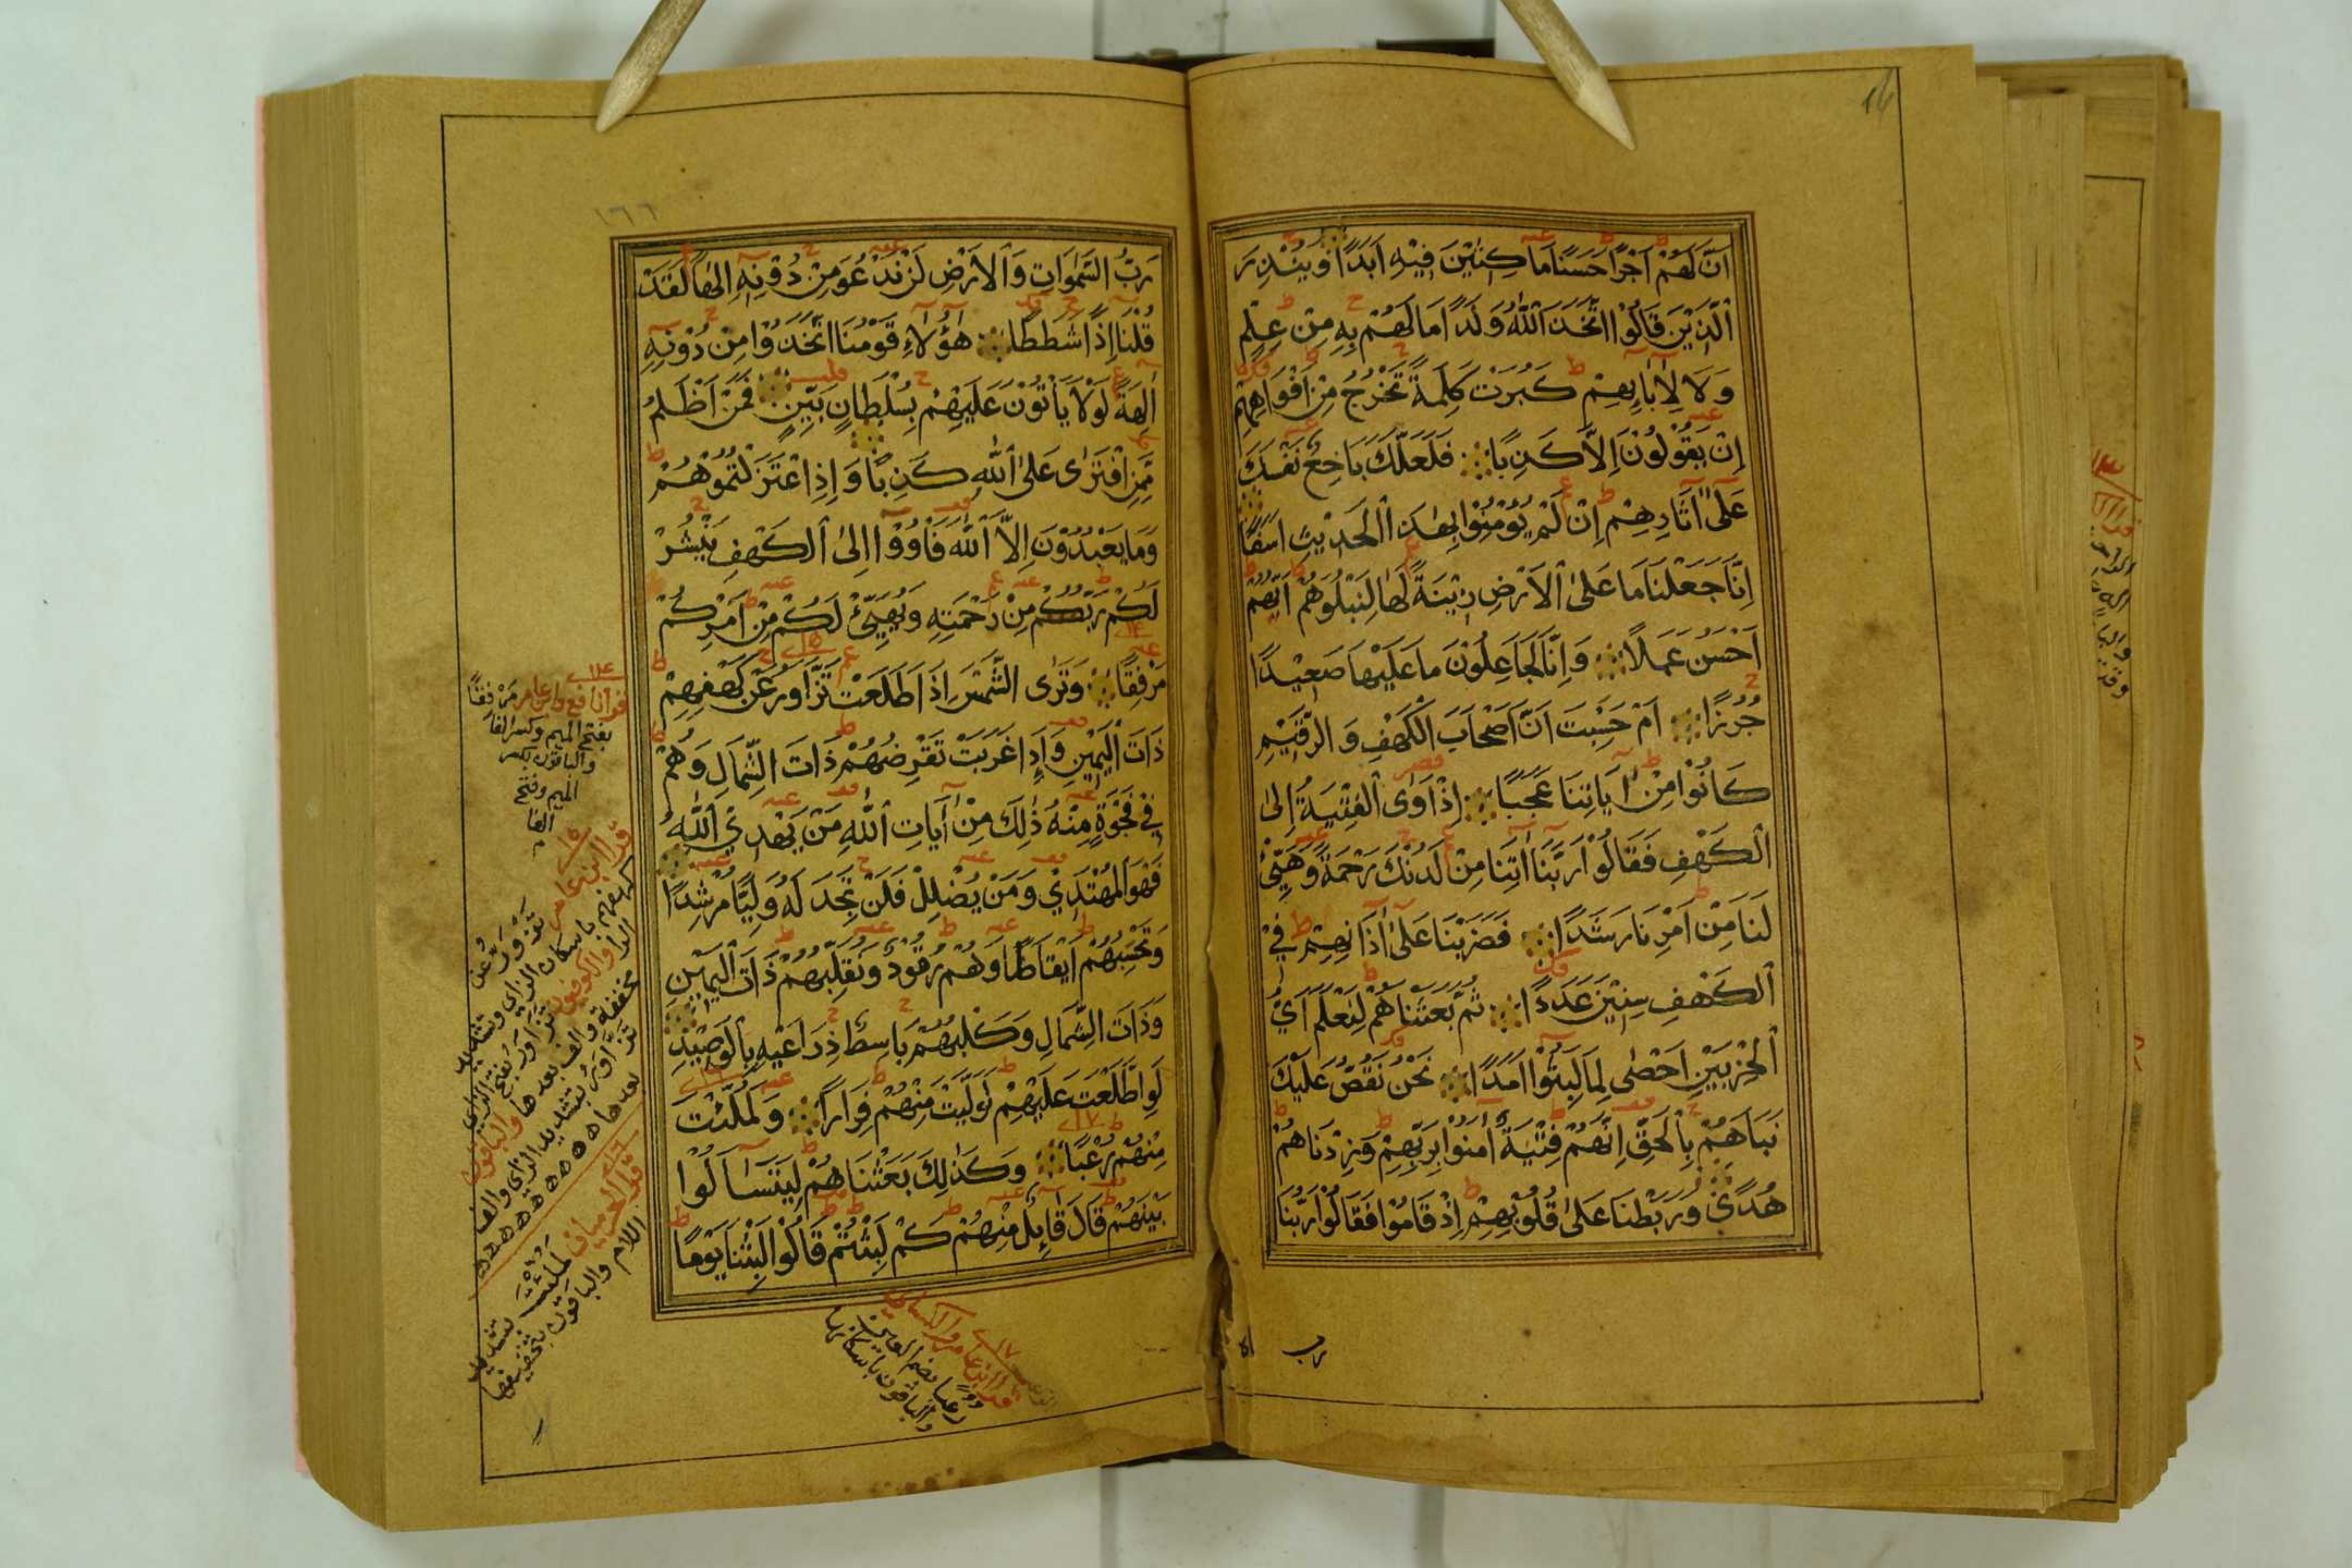 اَنَّ لَهُمْ اَجْرًا حَسَنًا مَاكِثِيْنَ فِيْهِ اَبَدًا وَيُنْذِرَ
الَّذِيْنَ قَالُوْا اتَّخَذَ اللّٰهُ وَلَدًا مَا لَهُمْ بِهِ مِنْ عِلْمٍ
وَلَا لِاٰبَاۤئِهِمْ كَبُرَتْ كَلِمَةً تَخْرُجُ مِنْ اَفْوَاهِهِمْ
اِنْ يَقُوْلُوْنَ اِلَّا كَذِبًا فَلَعَلَّكَ بَاخِعٌ نَفْسَكَ
عَلٰى اٰثَارِهِمْ اِنْ لَمْ يُؤْمِنُوْا بِهٰذَا الْحَدِيْثِ اَسَفًا
اِنَّا جَعَلْنَا مَا عَلَى الْاَرْضِ زِيْنَةً لَهَا لِنَبْلُوَهُمْ اَيُّهُمْ
اَحْسَنُ عَمَلًا وَاِنَّا لَجَاعِلُوْنَ مَا عَلَيْهَا صَعِيْدًا
جُرُزًا اَمْ حَسِبْتَ اَنَّ اَصْحَابَ الْكَهْفِ وَالرَّقِيْمِ
كَانُوْا مِنْ اٰيَاتِنَا عَجَبًا اِذْ اَوَى الْفِتْيَةُ اِلَى
الْكَهْفِ فَقَالُوْا رَبَّنَا اٰتِنَا مِنْ لَدُنْكَ رَحْمَةً وَهَيِّئْ
لَنَا مِنْ اَمْرِنَا رَشَدًا فَضَرَبْنَا عَلٰى اٰذَانِهِمْ فِي
الْكَهْفِ سِنِيْنَ عَدَدًا ثُمَّ بَعَثْنَاهُمْ لِنَعْلَمَ اَيُّ
الْحِزْبَيْنِ اَحْصٰى لِمَا لَبِثُوْا اَمَدًا نَحْنُ نَقُصُّ عَلَيْكَ
نَبَاَهُمْ بِالْحَقِّ اِنَّهُمْ فِتْيَةٌ اٰمَنُوْا بِرَبِّهِمْ وَزِدْنَاهُمْ
هُدًى وَرَبَطْنَا عَلٰى قُلُوْبِهِمْ اِذْ قَامُوْا فَقَالُوْا رَبُّنَا
رب
١٦٦
رَبُّ السَّمٰوَاتِ وَالْاَرْضِ لَنْ نَدْعُوَ مِنْ دُوْنِهِ اِلٰهًا لَقَدْ
قُلْنَا اِذًا شَطَطًا هٰؤُلَاءِ قَوْمُنَا اتَّخَذُوْا مِنْ دُوْنِهِ
اٰلِهَةً لَوْلَا يَأْتُوْنَ عَلَيْهِمْ بِسُلْطَانٍ بَيِّنٍ فَمَنْ اَظْلَمُ
مِمَّنِ افْتَرٰى عَلَى اللّٰهِ كَذِبًا وَاِذِ اعْتَزَلْتُمُوْهُمْ
وَمَا يَعْبُدُوْنَ اِلَّا اللّٰهَ فَأْوُوْا اِلَى الْكَهْفِ يَنْشُرْ
لَكُمْ رَبُّكُمْ مِنْ رَحْمَتِهِ وَيُهَيِّئْ لَكُمْ مِنْ اَمْرِكُمْ
مَرْفِقًا وَتَرَى الشَّمْسَ اِذَا طَلَعَتْ تَزَّاوَرُ عَنْ كَهْفِهِمْ
ذَاتَ الْيَمِيْنِ وَاِذَا غَرَبَتْ تَقْرِضُهُمْ ذَاتَ الشِّمَالِ وَهُمْ
فِيْ فَجْوَةٍ مِنْهُ ذٰلِكَ مِنْ اٰيَاتِ اللّٰهِ مَنْ يَهْدِي اللّٰهُ
فَهُوَ الْمُهْتَدِيْ وَمَنْ يُضْلِلْ فَلَنْ تَجِدَ لَهُ وَلِيًّا مُرْشِدًا
وَتَحْسِبُهُمْ اَيْقَاظًا وَهُمْ رُقُوْدٌ وَنُقَلِّبُهُمْ ذَاتَ الْيَمِيْنِ
وَذَاتَ الشِّمَالِ وَكَلْبُهُمْ بَاسِطٌ ذِرَاعَيْهِ بِالْوَصِيْدِ
لَوِ اطَّلَعْتَ عَلَيْهِمْ لَوَلَّيْتَ مِنْهُمْ فِرَارًا وَلَمُلِّئْتَ
مِنْهُمْ رُعْبًا وَكَذٰلِكَ بَعَثْنَاهُمْ لِيَتَسَاۤءَلُوْا
بَيْنَهُمْ قَالَ قَاۤئِلٌ مِنْهُمْ كَمْ لَبِثْتُمْ قَالُوْا لَبِثْنَا يَوْمًا
١٤
قرأ نافع وابن عامر مَرْفِقًا
بفتح الميم وكسر الفا
والباقون بكسر
الميم وفتح
الفا
١٥
قرا ابن عامر
تزورّ عن
كهفهم باسكان الزاى وتشديد
الراء والكوفيون تزاور بفتح الزاى
مخففة والف بعدها والباقون
تزّاور بتشديد الزاى والف
بعدها
١٦
قرا الحرميان لملّئت بتشديد
اللام والباقون بتخفيفها
١٧
قرا ابن عامر والكسائى
رعبا بضم العين
والباقون باسكانها